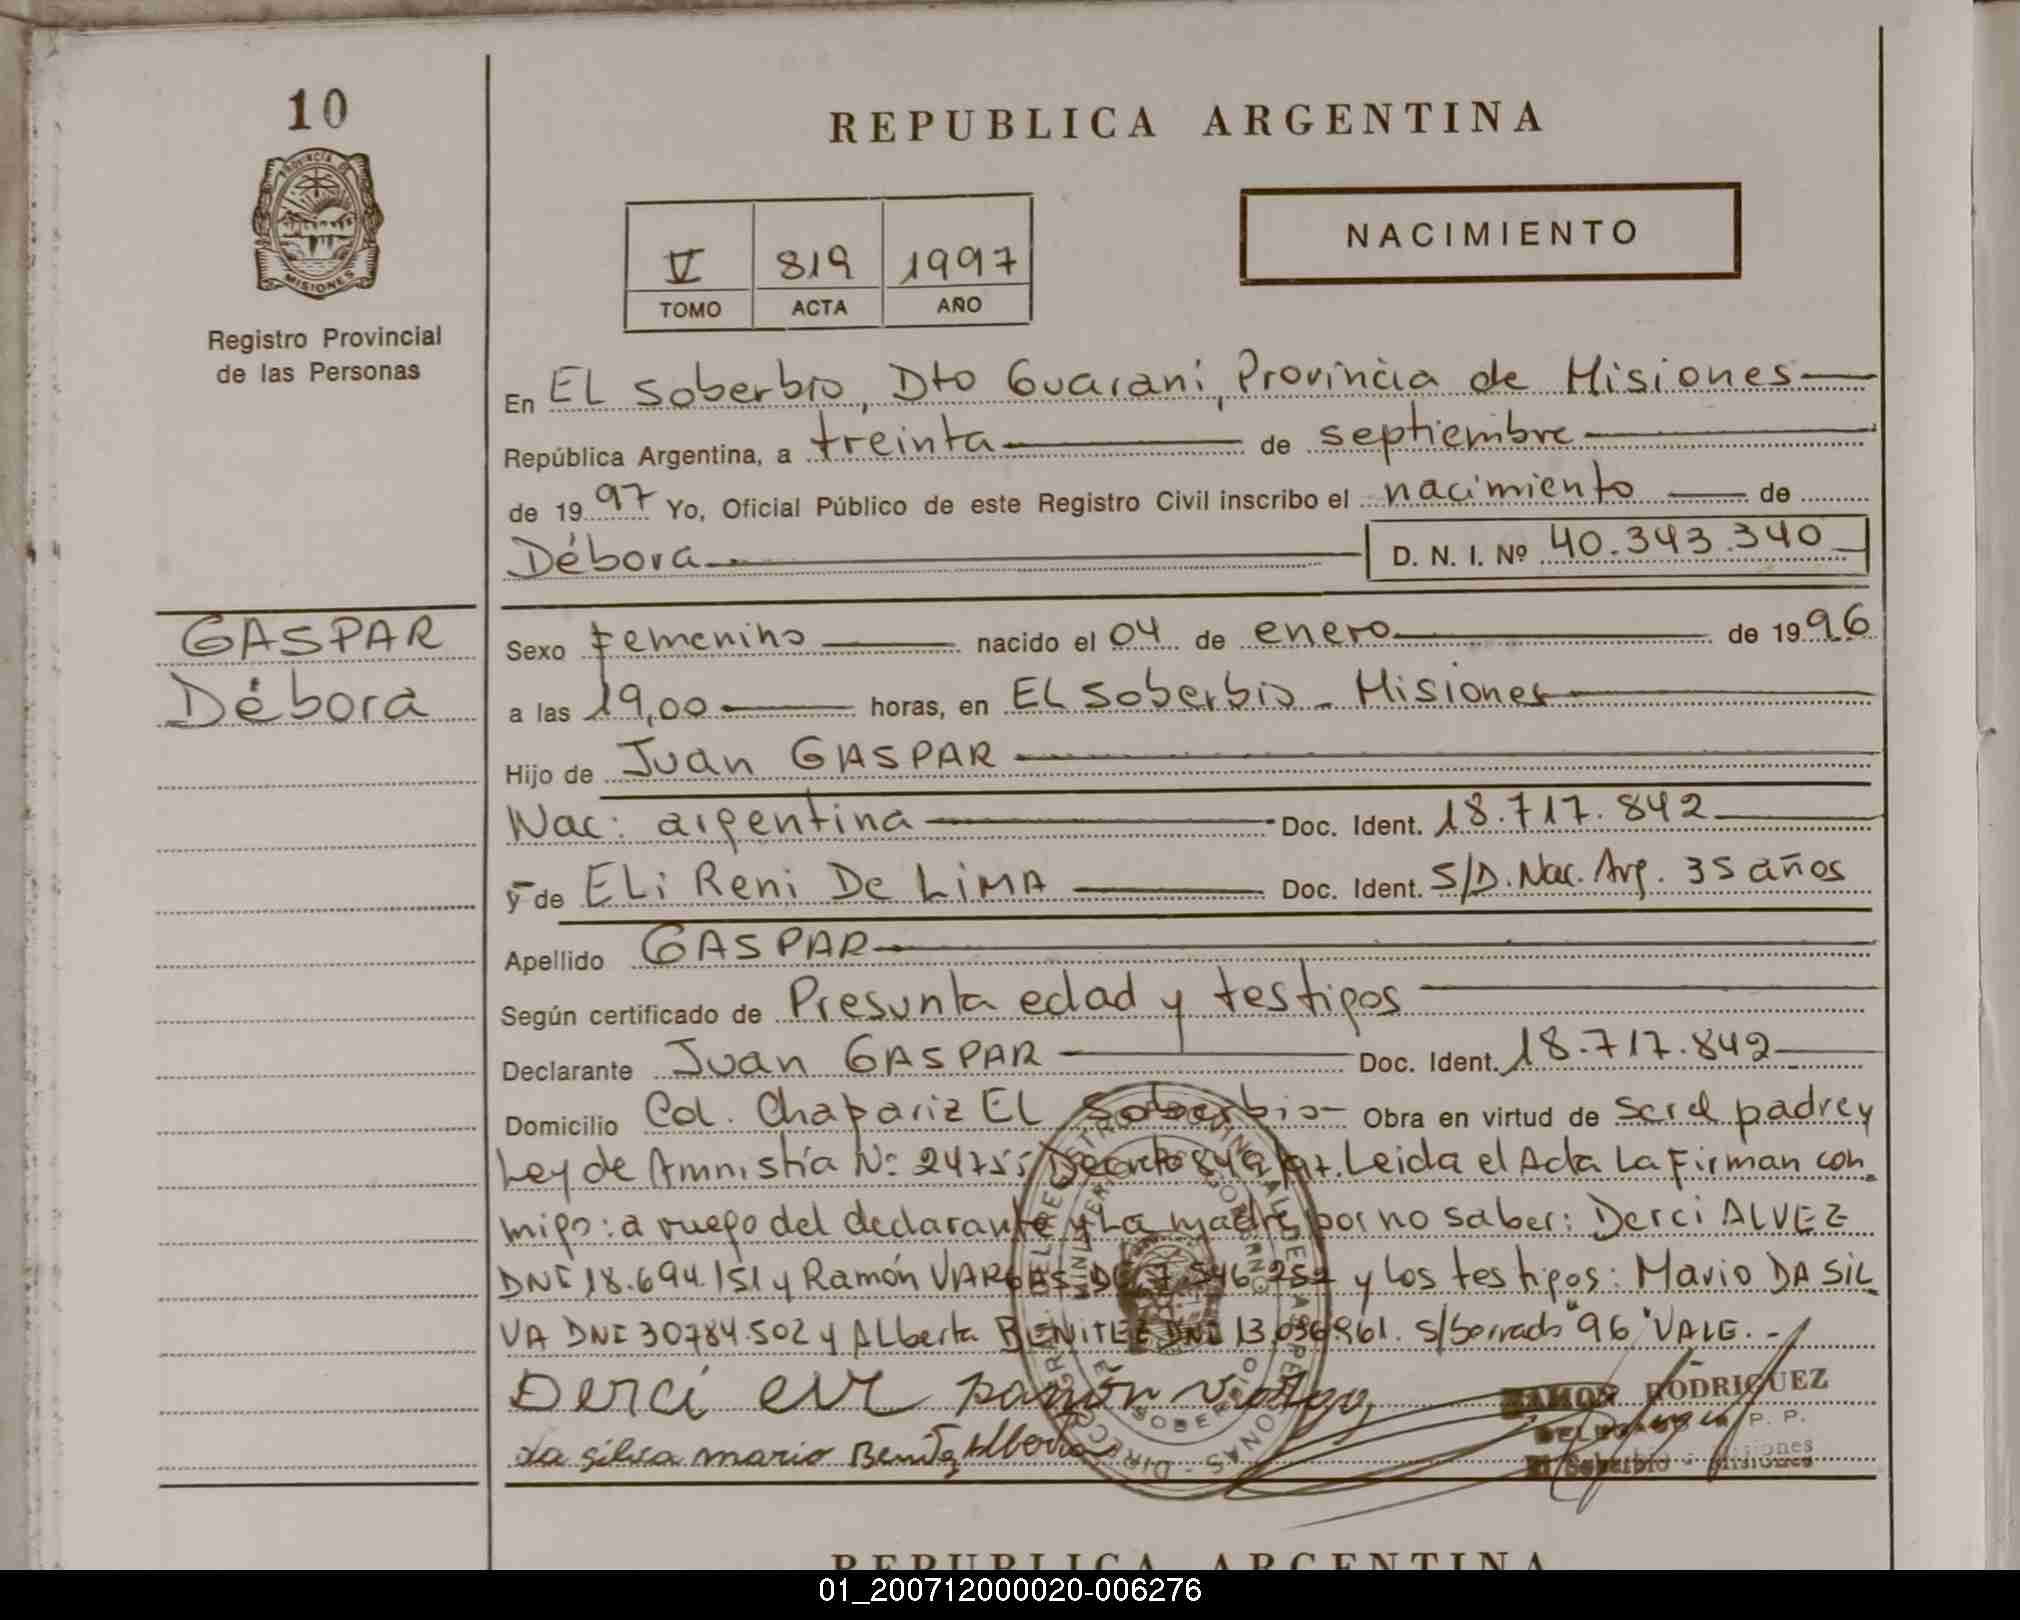 10
PROVINCIA DE
MISIONES
Registro Provincial
de las Personas
GASPAR
Débora
REPUBLICA ARGENTINA
V 819 1997
TOMO ACTA AÑO
NACIMIENTO
En EL Soberbio, Dto Guaraní, Provincia de Misiones
República Argentina, a treinta de septiembre
de 1997 Yo, Oficial Público de este Registro Civil inscribo el nacimiento de
Débora D. N. I. Nº 40.343.340
Sexo Femenino nacido el 04 de enero de 1996
a las 19,00 horas, en EL Soberbio - Misiones
Hijo de Juan GASPAR
Nac: argentina Doc. Ident. 18.717.842
y de ELi Reni De LiMA Doc. Ident. S/D. Nac. Arg. 35 años
Apellido GASPAR
Según certificado de Presunta edad y testigos
Declarante Juan GASPAR Doc. Ident. 18.717.842
Domicilio Col. Chapariz EL Soberbio - Obra en virtud de ser el padre y
Ley de Amnistía Nº 24755 Decreto 849/97. Leida el Acta La Firman con
migo: a ruego del declarante y La madre por no saber: Derci ALVEZ
DNI 18.694.151 y Ramón VARGAS DNI 7.546.252 y Los testigos: Mario DA SIL
VA DNI 30784.502 y ALberta BENITEZ DNI 13.036961. S/borrado "96" VALE. -
Derci ramón vargas
da silva mario Benitez Alberta
RAMON RODRIGUEZ
El Soberbio - Misiones
REPUBLICA ARGENTINA
01_200712000020-006276